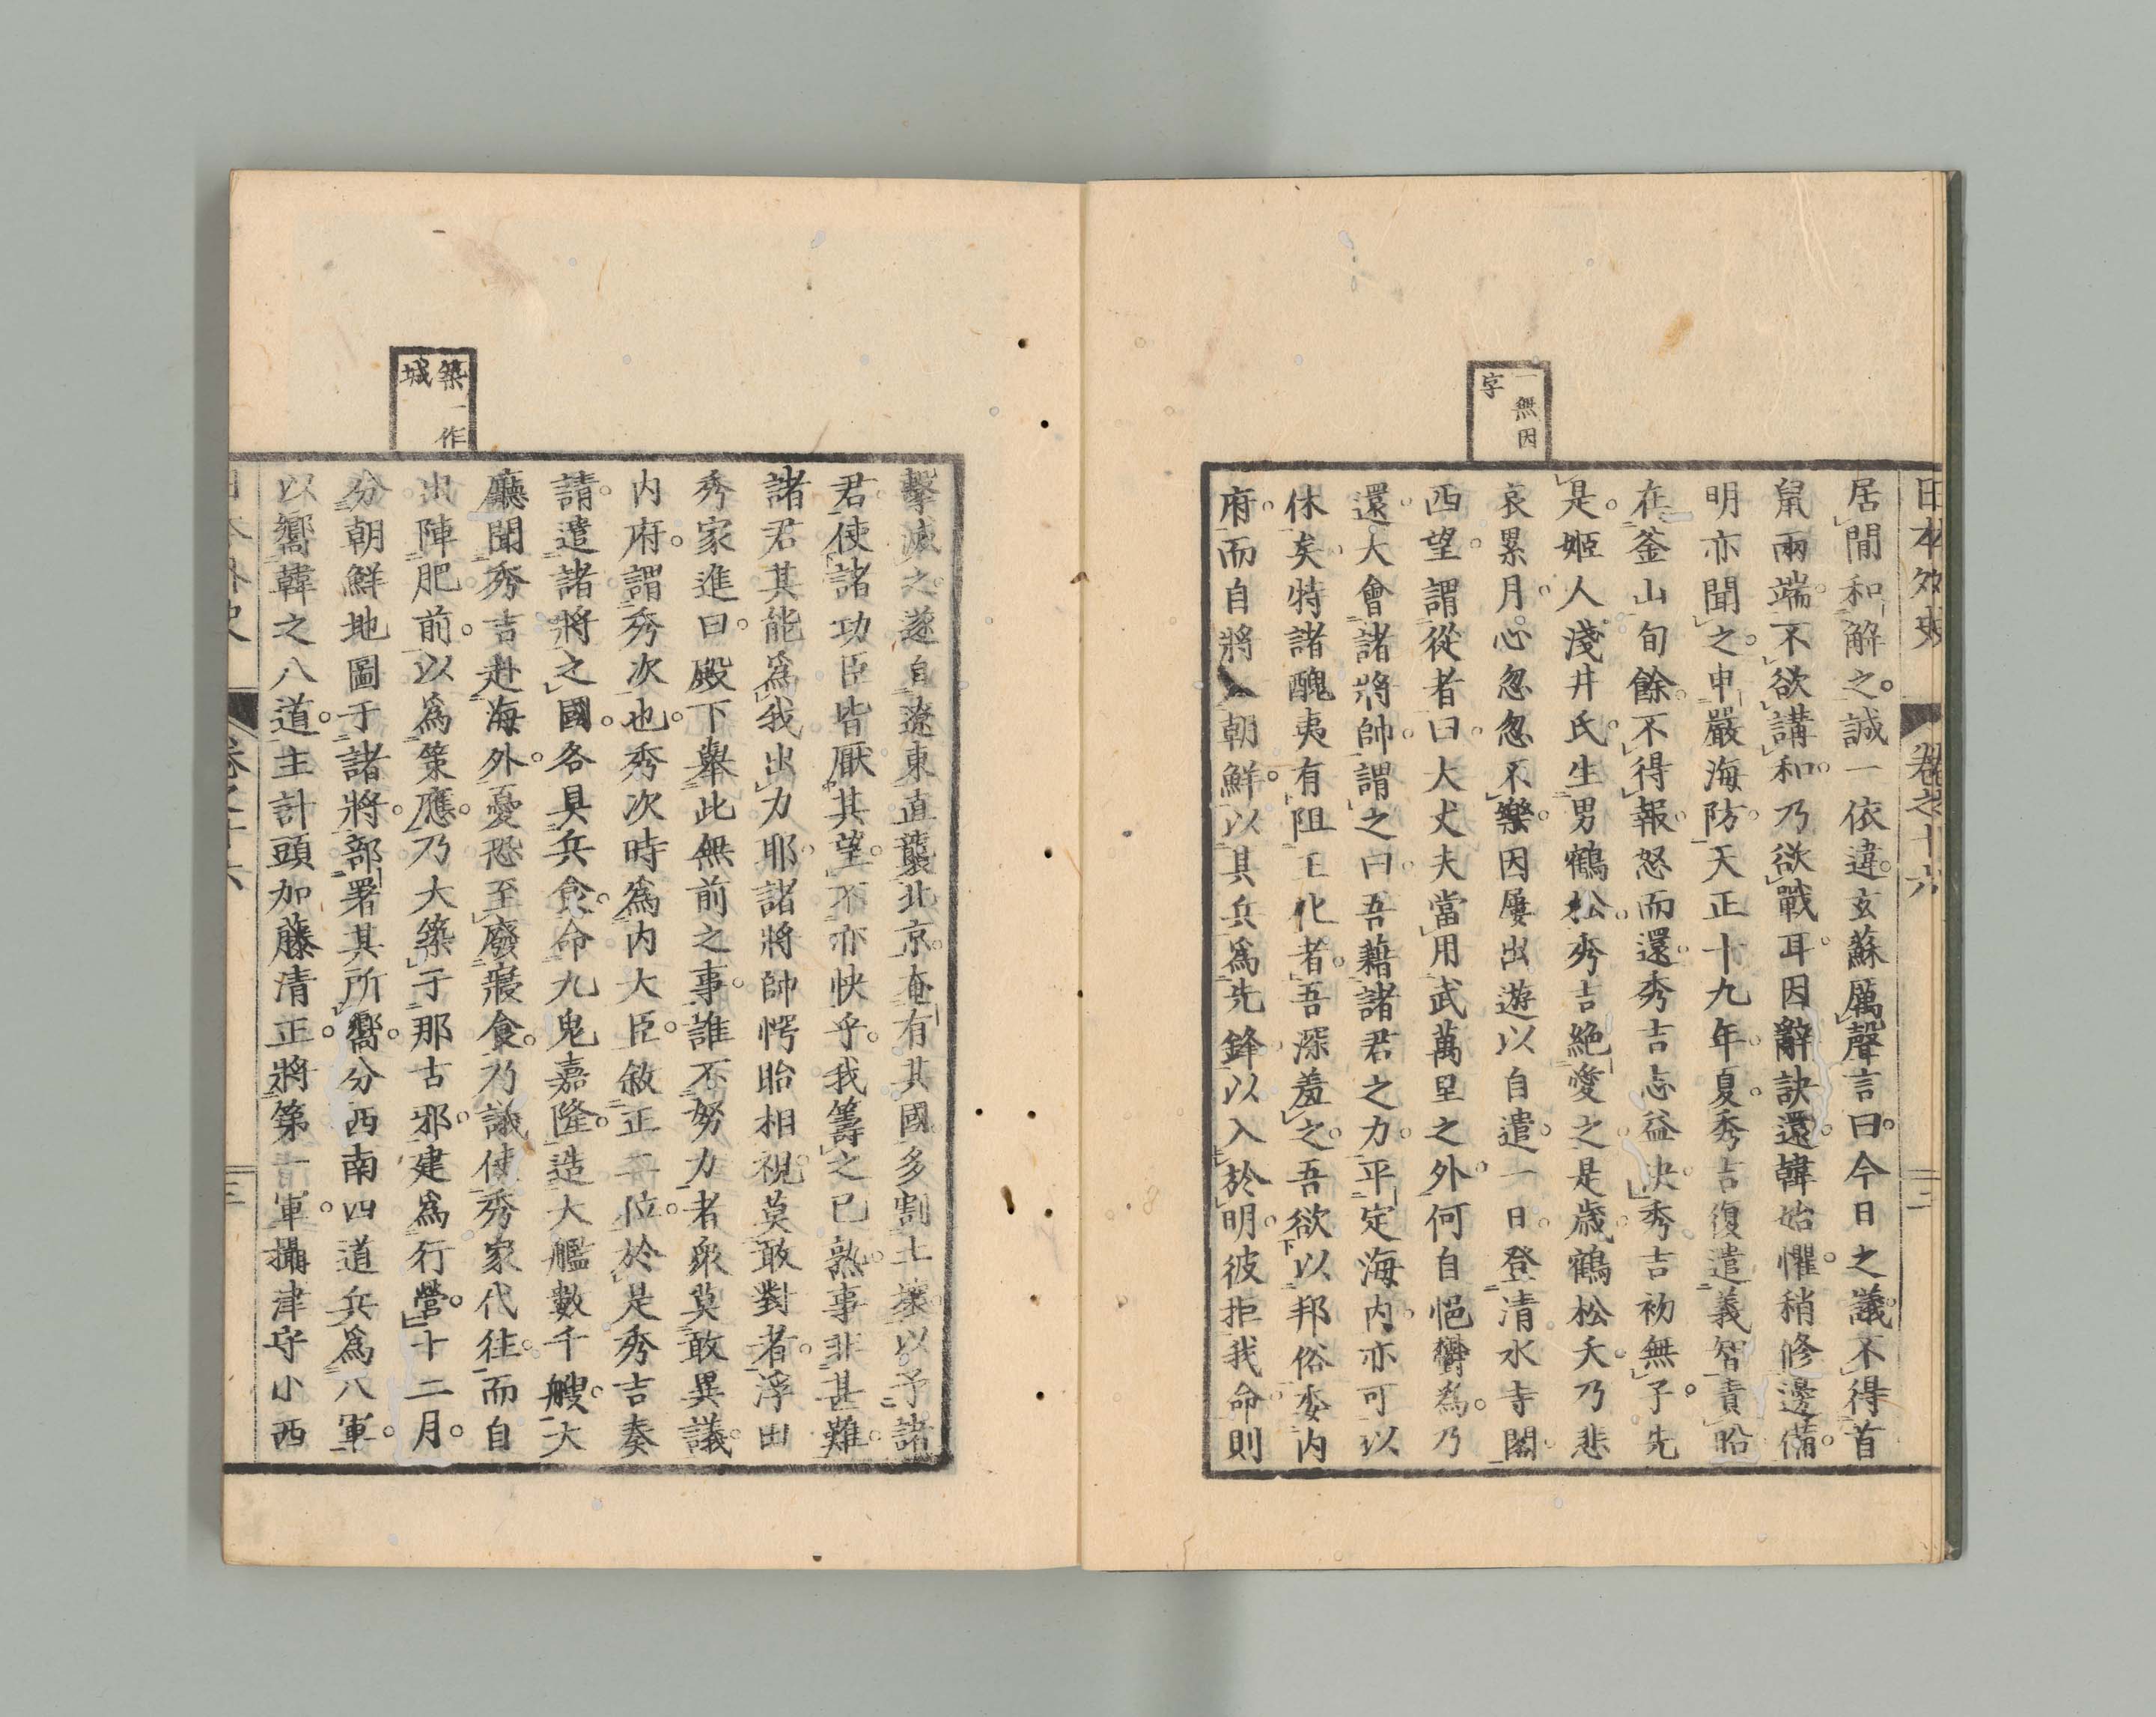 日本外史 卷之十六 二
一無因
字
居閒和解之誠一依違玄蘇厲聲言曰今日之議不得首
鼠兩端不欲講和乃欲戰耳因辭訣還韓始懼稍修邊備
明亦聞之申嚴海防天正十九年夏秀吉復遣義智責昭
在釜山旬餘不得報怒而還秀吉志益決秀吉初無子先
是姬人淺井氏生男鶴松秀吉絕愛之是歲鶴松夭乃悲
哀累月心忽忽不樂因屢出遊以自遣一日登清水寺閣
西望謂從者曰大丈夫當用武萬里之外何自悒鬱爲乃
還大會諸將帥謂之曰吾藉諸君之力平定海內亦可以
休矣特諸醜夷有阻王化者吾深羞之吾欲以邦俗委內
府而自將入朝鮮以其兵爲先鋒以入於明彼拒我命則
築一作
城
擊滅之遂自遼東直襲北京奄有其國多割土壤以予諸
君使諸功臣皆厭其望不亦快乎我籌之已熟事非甚難
諸君其能爲我出力耶諸將帥愕眙相視莫敢對者浮田
秀家進曰殿下舉此無前之事誰不努力者衆莫敢異議
內府謂秀次也秀次時爲內大臣敘正二位於是秀吉奏
請遣諸將之國各具兵食命九鬼嘉隆造大艦數千艘大
廳聞秀吉赴海外憂恐至廢寢食乃議使秀家代往而自
出陣肥前以爲策應乃大築于那古邪建爲行營十二月
分朝鮮地圖于諸將部署其所嚮分西南四道兵爲八軍
以嚮韓之八道主計頭加藤清正將第一軍攝津守小西
卷之十六 三